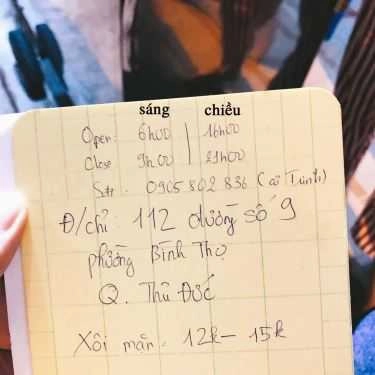 sáng chiều
Open: 6h00 | 16h00
Close 9h00 | 21h00
Sđt: 0905 802 836 (
Đ/chỉ: 112 đường số 9
phường Bình Thọ
Q. Thủ Đức
Xôi mặn. 12k - 15k